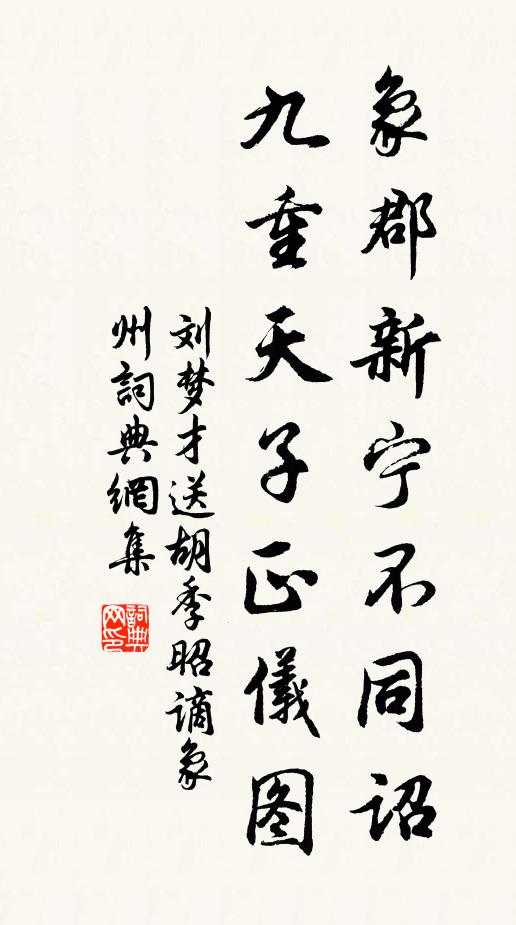 象郡新宁不同诏
九重天子正仪图
刘梦才送胡季昭谪象
州詞典網集
詞典网印